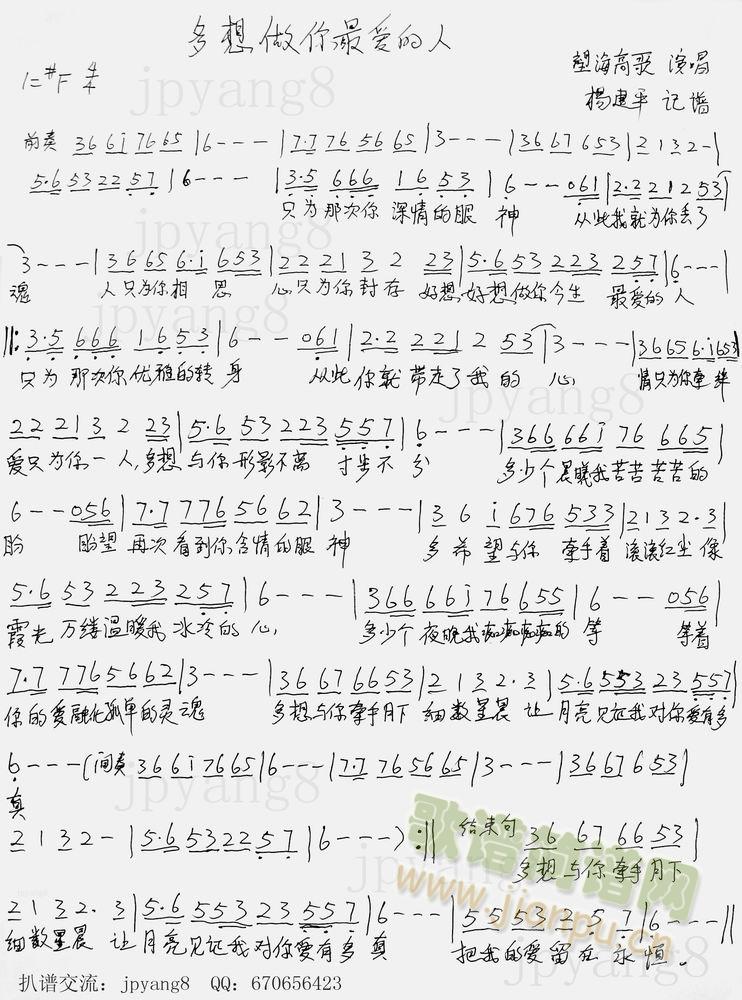 多想做你最爱的人
1=#F 4/4
望海高歌 演唱
杨建平 记谱
jpyang8
前奏 3 6 6 i 7 6 6 5 | 6 - - - | 7·7 7 6 5 6 6 5 | 3 - - - | 3 6 6 7 6 5 3 | 2 1 3 2 - |
5·6 5 3 2 2 5 7 | 6 - - - | 3·5 6 6 6 1 6 5 3 | 6 - - 0 6 1 | 2·2 2 1 2 5 3 |
只为那次你 深情的眼 神 从此我就为你丢了
jpyang8
3 - - - | 3 6 6 5 6·i 6 5 3 | 2 2 2 1 3 2 2 3 | 5·6 5 3 2 2 3 2 5 7 | 6 - - - |
魂 人只为你相 思 心只为你封存 好想好想做你今生 最爱的人
‖: 3·5 6 6 6 1 6 5 3 | 6 - - 0 6 1 | 2·2 2 2 1 2 5 3 | 3 - - - | 3 6 6 5 6·i 6 5 3 |
只为 那次你优雅的转 身 从此 你就 带走了我的 心 情只为你牵绊
jpyang8
2 2 2 1 3 2 2 3 | 5·6 5 3 2 2 3 5 5 7 | 6 - - - | 3 6 6 6 6 i 7 6 6 6 5 |
爱只为你一人,多想 与你形影不离 寸步不 分 多少个晨曦我苦苦苦苦的
6 - - 0 5 6 | 7·7 7 7 6 5 6 6 2 | 3 - - - | 3 6 i 6 7 6 5 3 3 | 2 1 3 2·3 |
盼 盼望 再次看到你含情的眼 神 多希望与你 牵手着 滚滚红尘 像
5·6 5 3 2 2 3 2 5 7 | 6 - - - | 3 6 6 6 6 i 7 6 6 5 5 | 6 - - 0 5 6 |
霞光 万缕温暖我 冰冷的 心, 多少个夜晚我痴痴痴痴的 等 等着
7·7 7 7 6 5 6 6 2 | 3 - - - | 3 6 6 7 6 6 5 3 | 2 1 3 2·3 | 5·6 5 5 3 2 3 5 5 7 |
你的爱融化孤单的灵魂 多想与你牵手月下 细数星晨 让月亮见证我对你爱有多
6 - - - ( 间奏 3 6 6 i 7 6 6 5 | 6 - - - | 7·7 7 6 5 6 6 5 | 3 - - - | 3 6 6 7 6 5 3 |
真
jpyang8
2 1 3 2 - | 5·6 5 3 2 2 5 7 | 6 - - - ) :‖ 结束句 3 6 6 7 6 6 5 3 |
多想与你牵手月下
歌谱简谱网
www.jianpu.cn
2 1 3 2· 3 | 5·6 5 5 3 2 3 5 5 7 | 6 - - - | 5 5 5 3 2 5 7 | 6 - - - ‖
细数星晨 让月亮见证我对你爱有多 真 把我的爱留在 永恒。
扒谱交流：jpyang8 QQ：670656423